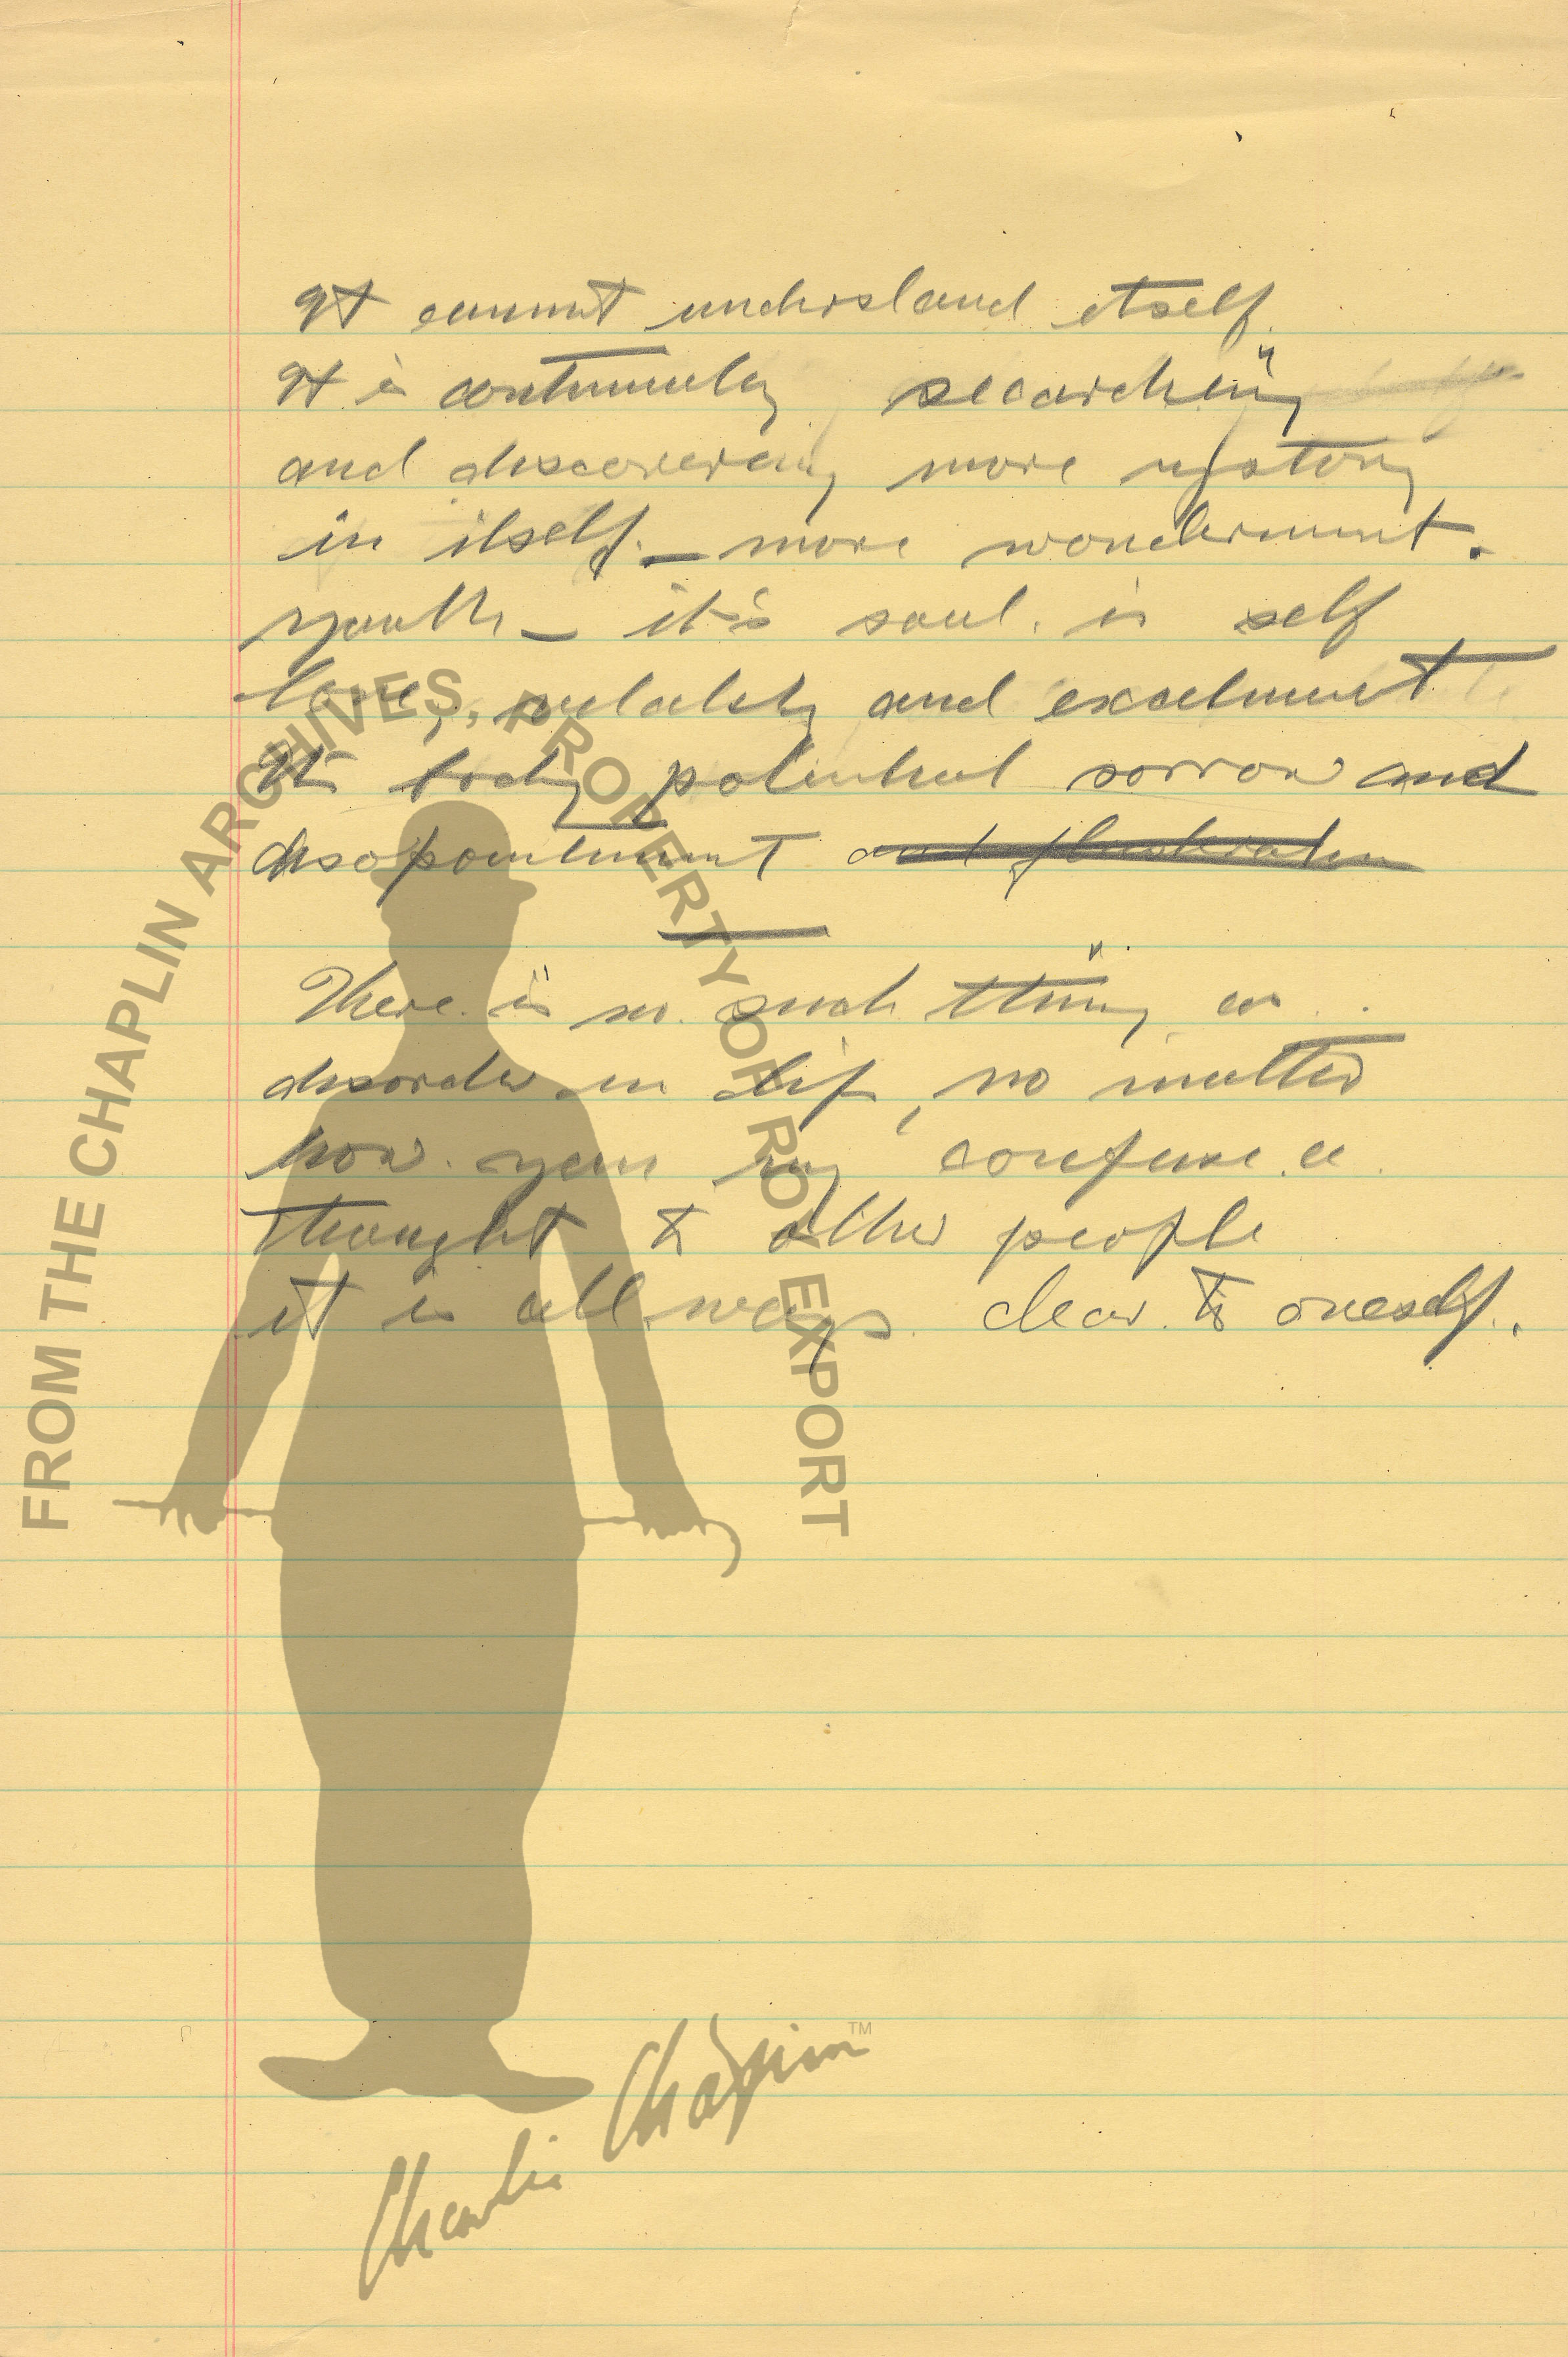 It cannot understand itself.
It is continualy searching
and discovering more mystory
in itself. – more wonderment.
youth – it's soul. is self
love, and excitment
It's body potential sorrow and
disapointment and flustration
There is no such thing as
disorder in life, no matter
how confuse a
thought to other people
it is allways clear to oneself.
FROM THE CHAPLIN ARCHIVES, PROPERTY OF ROY EXPORT
Charlie Chaplin™